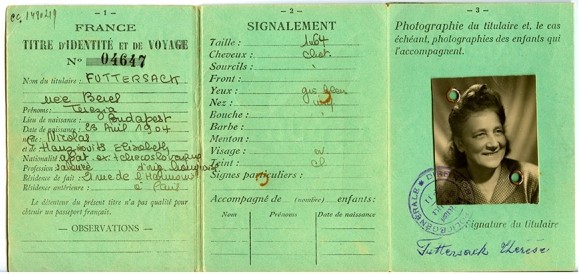 CC 1480219
— 1 —
FRANCE
TITRE D'IDENTITÉ ET DE VOYAGE
N° 04647
Nom du titulaire: FUTTERSACK
née Berel
Prénoms: Terezia
Lieu de naissance: Budapest
Date de naissance: 23 Avril 1904
de Nicolas
et Elisabeth
Nationalité apat. ex: tchécoslovaque
Profession d'orig. hongroise
Résidence de fait: rue de l'
Résidence antérieure: à Paris
Le détenteur du présent titre n'a pas qualité pour
obtenir un passeport français.
— OBSERVATIONS —
— 2 —
SIGNALEMENT
Taille: 1m64
Cheveux: chat
Sourcils: "
Front:
Yeux: gris bleu
Nez:
Bouche:
Barbe:
Menton:
Visage: ov
Teint: cl
Signes particuliers:
Accompagné de (nombre) enfants:
Nom Prénoms Date de naissance
— 3 —
Photographie du titulaire et, le cas
échéant, photographies des enfants qui
l'accompagnent.
Signature du titulaire
Futtersack Thérèse